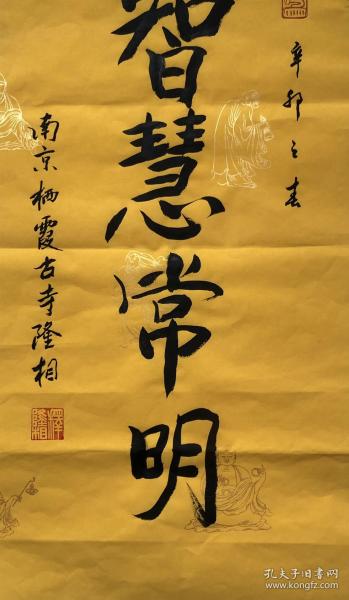 辛卯之春
智慧常明
南京栖霞古寺隆相
孔夫子旧书网
www.kongfz.com